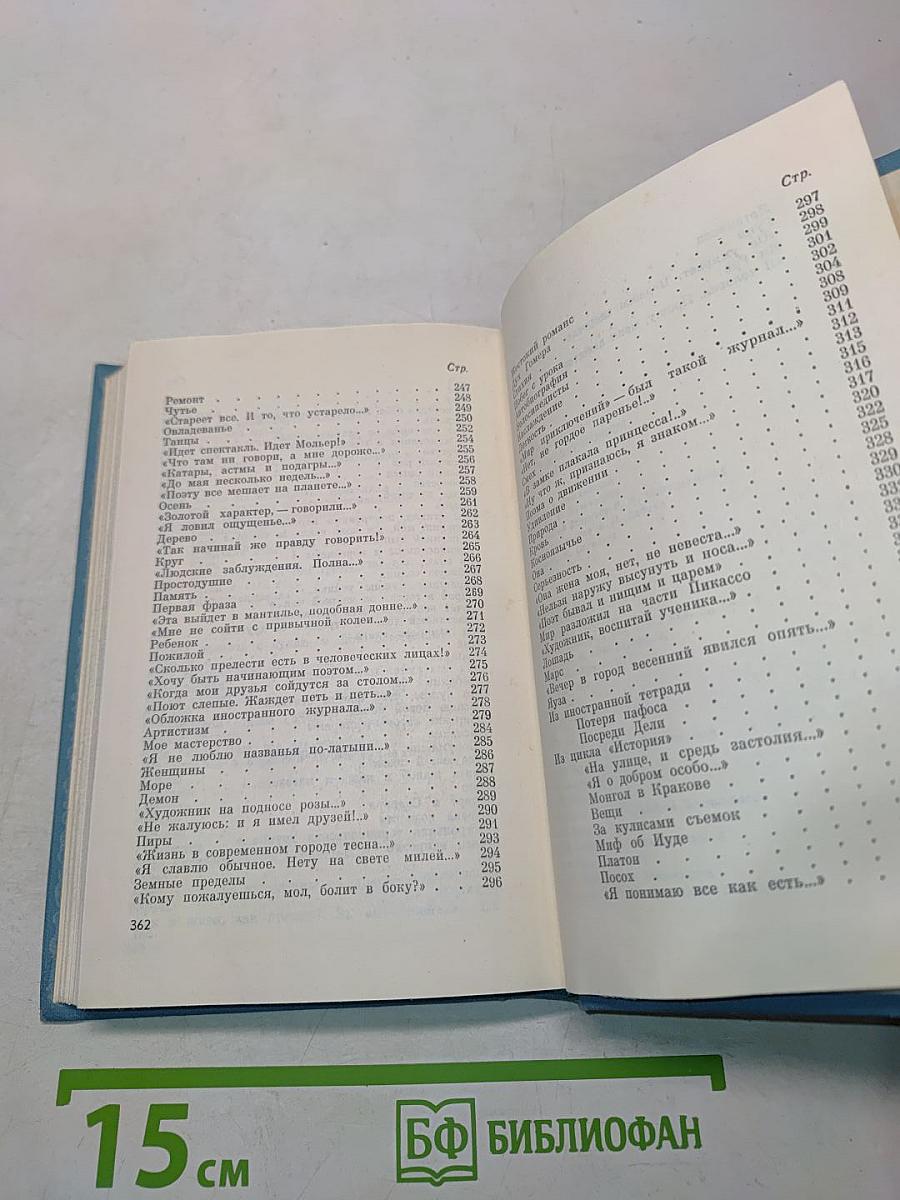 Стр.
Ремонт . . . 247
Чутье . . . 248
«Стареет все. И то, что устарело...» . . . 249
Овладеванье . . . 250
Танцы . . . 252
«Идет спектакль. Идет Мольер!» . . . 254
«Что там ни говори, а мне дороже...» . . . 255
«Катары, астмы и подагры...» . . . 256
«До мая несколько недель...» . . . 257
«Поэту все мешает на планете...» . . . 258
Осень . . . 259
«Золотой характер, — говорили...» . . . 261
«Я ловил ощущенье...» . . . 262
Дерево . . . 263
«Так начинай же правду говорить!» . . . 264
Круг . . . 265
«Людские заблуждения. Полна...» . . . 266
Простодушие . . . 267
Память . . . 268
Первая фраза . . . 269
«Эта выйдет в мантилье, подобная донне...» . . 270
«Мне не сойти с привычной колеи...» . . . 271
Ребенок . . . 272
Пожилой . . . 273
«Сколько прелести есть в человеческих лицах!» 274
«Хочу быть начинающим поэтом...» . . . 275
«Когда мои друзья сойдутся за столом...» . . . 276
«Поют слепые. Жаждет петь и петь...» . . . 277
«Обложка иностранного журнала...» . . . 278
Артистизм . . . 279
Мое мастерство . . . 284
«Я не люблю названья по-латыни...» . . . 285
Женщины . . . 286
Море . . . 287
Демон . . . 288
«Художник на подносе розы...» . . . 289
«Не жалуюсь: и я имел друзей!..» . . . 290
Пиры . . . 291
«Жизнь в современном городе тесна...» . . . 293
«Я славлю обычное. Нету на свете милей...» . 294
Земные пределы . . . 295
«Кому пожалуешься, мол, болит в боку?» . . 296
362
Стр.
романс . . . 297
Гомера . . . 298
299
с урока . . . 301
302
304
308
309
приключений» — был такой журнал...» 311
не гордое паренье!..» . . . 312
Смех . . . 313
замке плакала принцесса!..» . . . 315
что ж, признаюсь, я знаком...» . . . 316
о движении . . . 317
Удивление . . . 320
Природа . . . 322
Кровь . . . 325
Косноязычье . . . 328
Она . . . 329
Серьезность . . . 330
«Она жена моя, нет, не невеста...»
«Нельзя наружу высунуть и носа...»
«Поэт бывал и нищим и царем»
Мир разложил на части Пикассо
«Художник, воспитай ученика...»
Лошадь
Марс
«Вечер в город весенний явился опять...»
Яуза
Из иностранной тетради
Потеря пафоса
Посреди Дели
Из цикла «История»
«На улице, и средь застолия...»
«Я о добром особо...»
Монгол в Кракове
Вещи
За кулисами съемок
Миф об Иуде
Платон
Посох
«Я понимаю все как есть...»
15 см
БФ БИБЛИОФАН